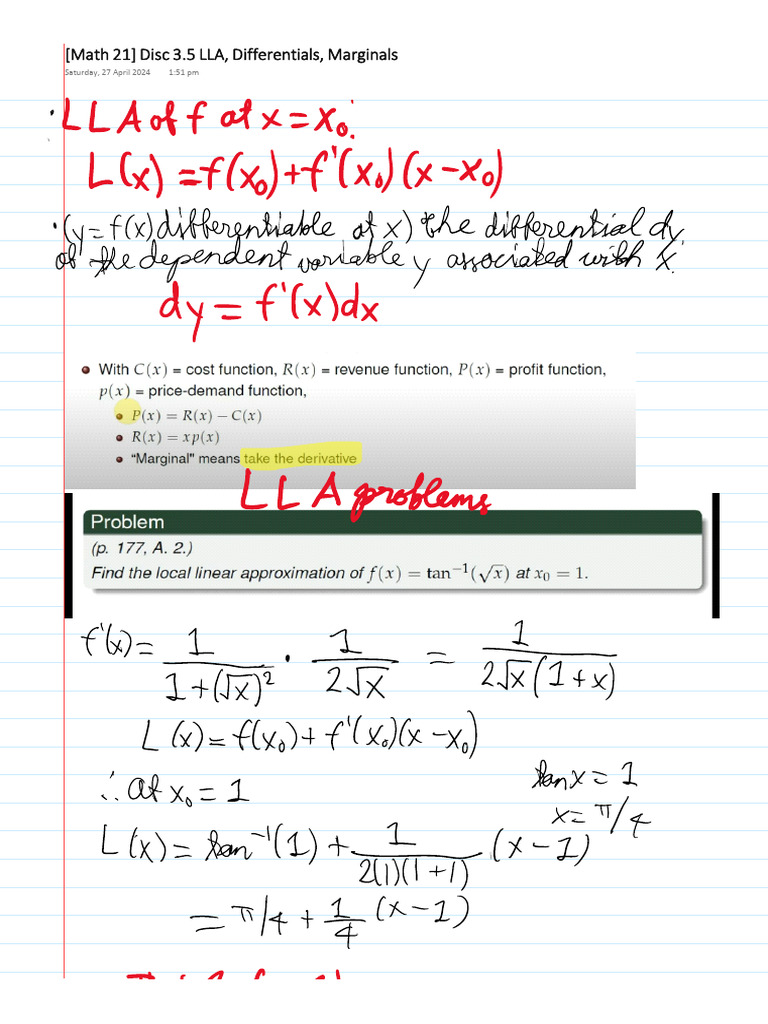 [Math 21] Disc 3.5 LLA, Differentials, Marginals
Saturday, 27 April 2024 1:51 pm
· LLA of f at x = x₀:
L(x) = f(x₀) + f'(x₀)(x - x₀)
· (y = f(x) differentiable at x) the differential dy
of the dependent variable y associated with x.
dy = f'(x)dx
• With C(x) = cost function, R(x) = revenue function, P(x) = profit function,
p(x) = price-demand function,
• P(x) = R(x) − C(x)
• R(x) = xp(x)
• “Marginal” means take the derivative
LLA problems
Problem
(p. 177, A. 2.)
Find the local linear approximation of f(x) = tan⁻¹(√x) at x₀ = 1.
f'(x) = 1/(1+(√x)²) · 1/(2√x) = 1/(2√x(1+x))
L(x) = f(x₀) + f'(x₀)(x - x₀)
∴ at x₀ = 1
tan x = 1
x = π/4
L(x) = tan⁻¹(1) + 1/(2(1)(1+1)) (x - 1)
= π/4 + 1/4 (x - 1)